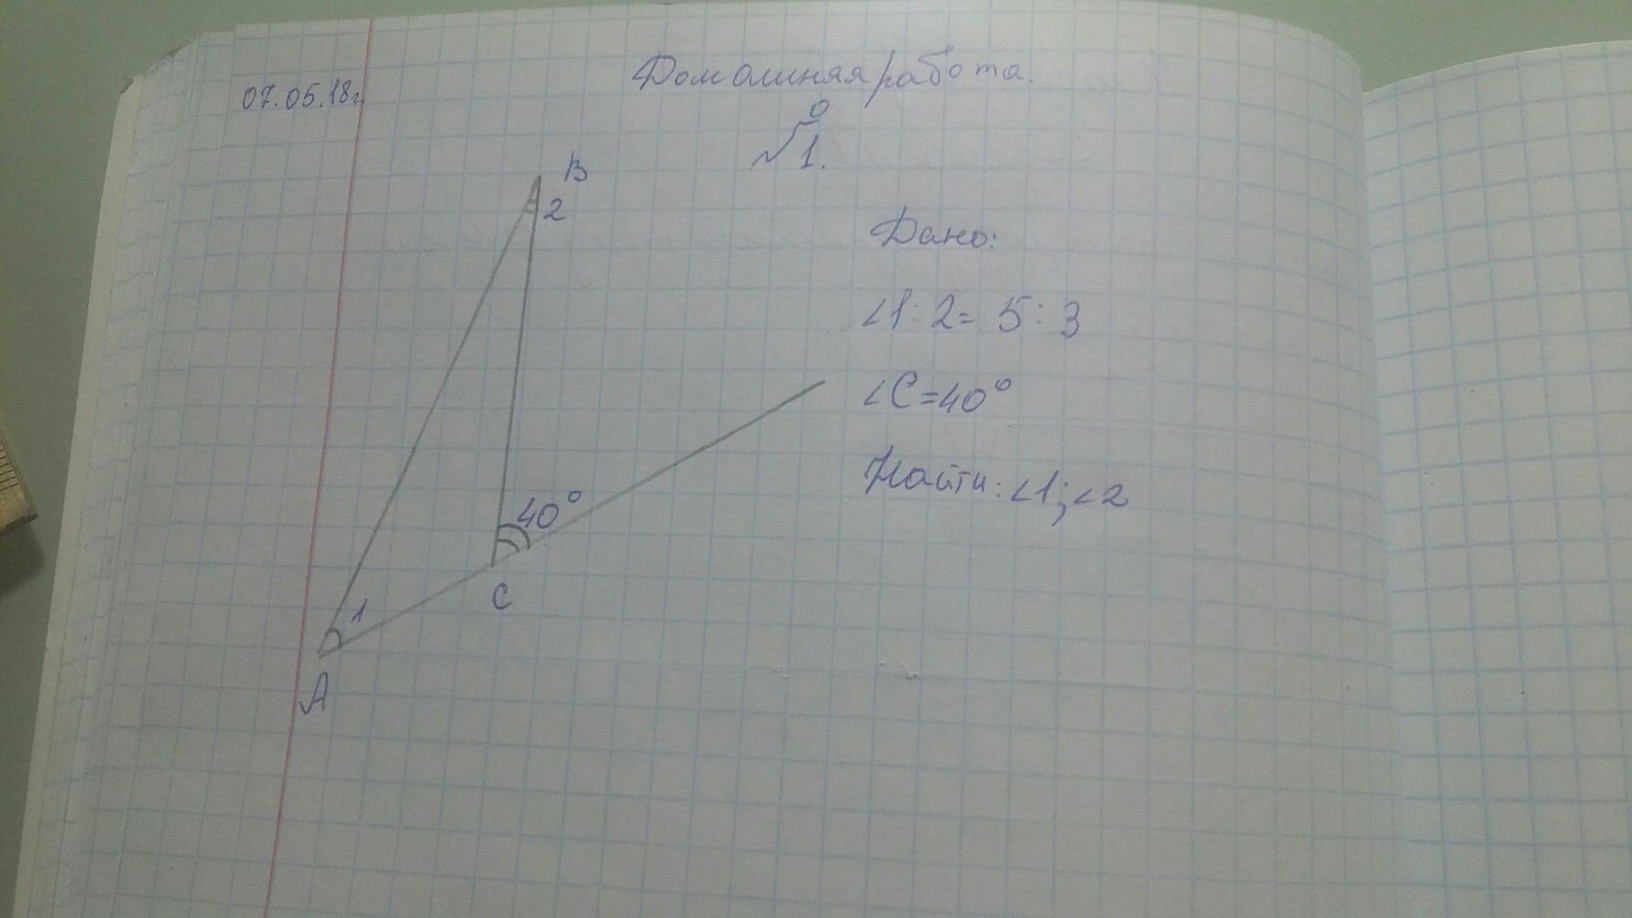 07.05.18г.
Домашняя работа.
№1.
B
2
Дано:
∠1:2=5:3
∠C=40°
Найти:∠1;∠2
40°
C
1
A